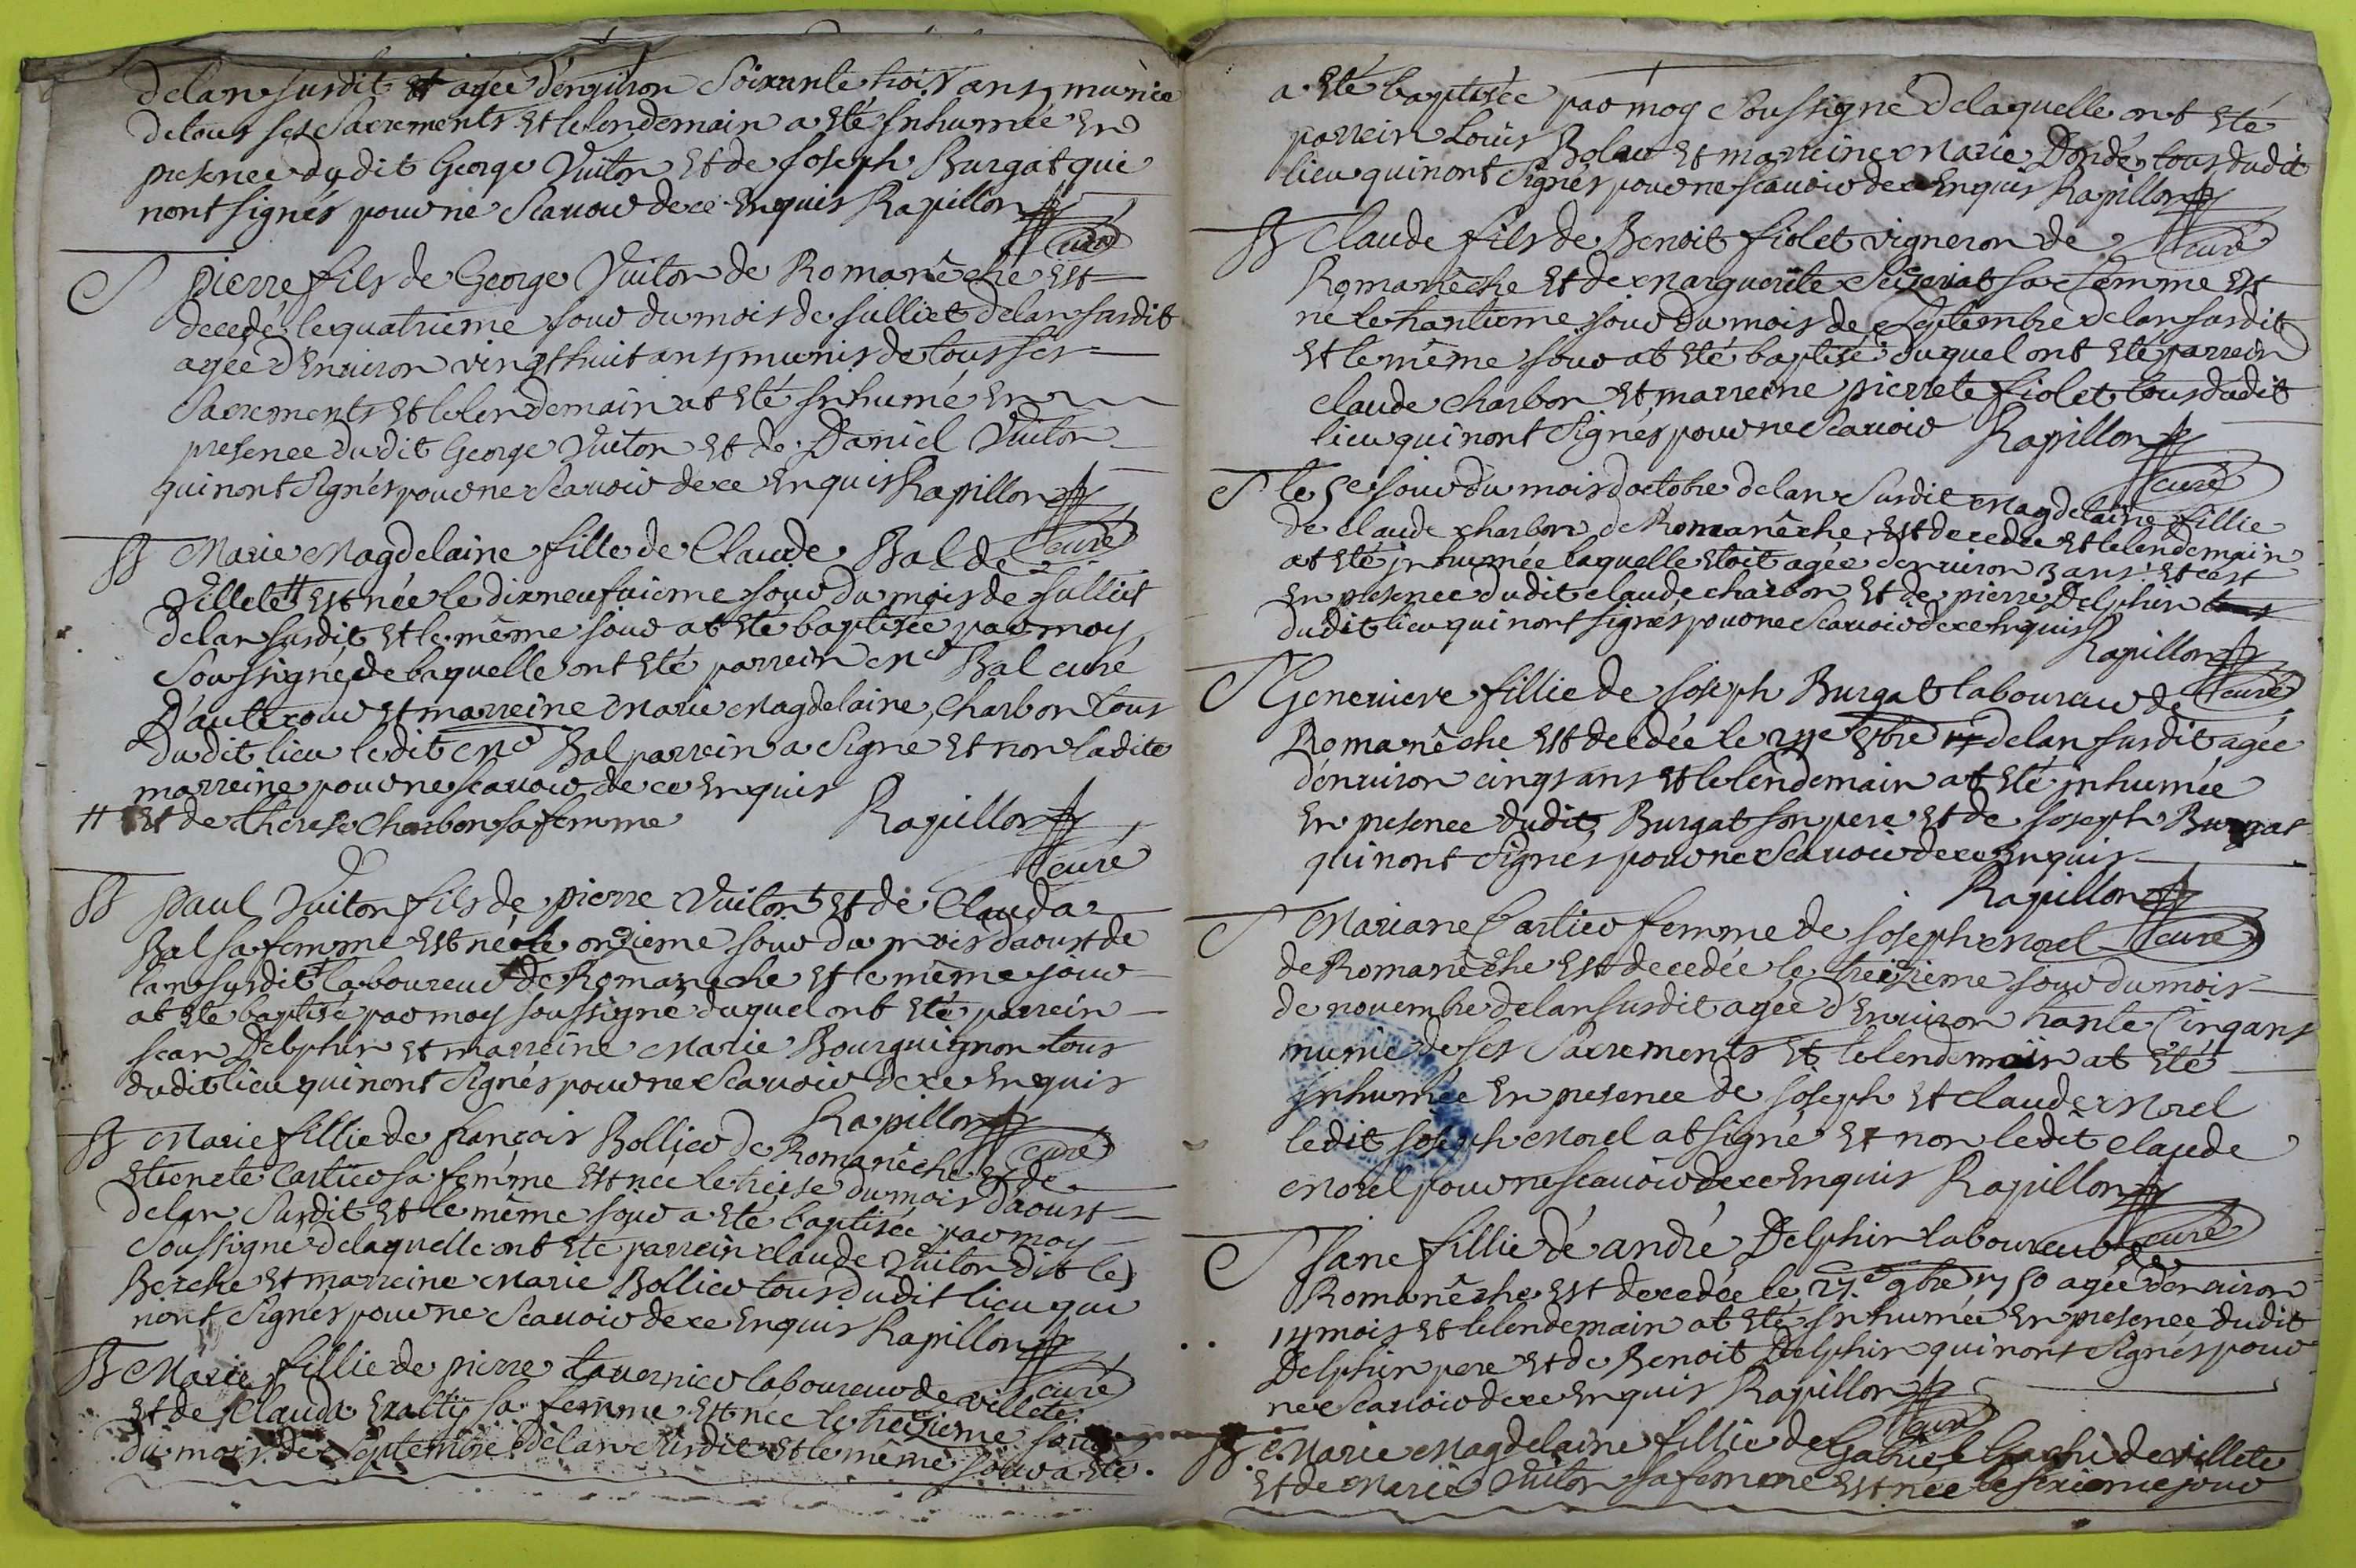 delan susdit et agée d'enuiron soixante trois ans, munie
de tous ses sacrements et le lendemain a eté inhumée en
presence dudit George Vuiton et de Joseph Burgat qui
nont signés pour ne scauoir de ce enquis Rapillon
curé
S pierre fils de George Vuiton de Romanêche est
decedé le quatrieme jour du mois de julliet delan susdit
agée d'enuiron vingt huit ans, munis de tous ses
sacrements et le lendemain at eté inhumé en
presence dudit George Vuiton et de Daniel Vuiton
qui nont signés pour ne scauoir de ce enquis Rapillon
curé
B Marie Magdelaine fille de Claude Bal de
Villete # est née le dixneufuieme jour du mois de julliet
delan susdit et le même jour at eté baptisée par moy
soussigné, de laquelle ont eté parrein mr Bal curé
D'autecour et marreine Marie Magdelaine Charbon tous
dudit lieu ledit mr Bal parrein a signé et non ladite
marreine pour ne scauoir de ce enquis
# et de therese Charbon sa femme Rapillon
curé
B paul Vuiton fils de pierre Vuiton # et de Clauda
Bal sa femme est né le onzieme jour du mois daoust de
lan susdit # laboureur de Romanêche et le même jour
at eté baptisé par moy soussigné duquel ont eté parrein
jean Delphin et marreine Marie Bourguignon tous
dudit lieu qui nont signés pour ne scauoir de ce enquis
Rapillon
curé
B Marie fillie de françois Bollier de Romanêche et de
etienete Cartier sa femme est née le treise du mois daoust
delan susdit et le même jour a eté baptisée par moy
soussigné delaquelle ont eté parrein claude Vuiton dit le
Berche et marreine Marie Bollier tous dudit lieu qui
nont signés pour ne scauoir de ce enquis Rapillon
curé
B Marie fillie de pierre tauernier laboureur de villete
et de Clauda sa femme est née le treizieme jour
du mois de septembre delan susdit et le même jour a eté
a eté baptisée par moy soussigné delaquelle ont eté
parrein Louis Bolau et marreine Marie Dondé tous dudit
lieu qui nont signés pour ne scauoir de ce enquis Rapillon
curé
B Claude fils de Benoit fiolet vigneron de
Romanêche et de Marguerite sa femme est
né le trantieme jour du mois de septembre delan susdit
et le même jour at eté baptisé duquel ont eté parrein
claude charbon et marreine pierrete fiolet tous dudit
lieu qui nont signés pour ne scauoir Rapillon
curé
S le 5e jour du mois d'octobre delan susdit Magdelaine fillie
de claude charbon de Romanêche est decedée et le lendemain
at eté inhumée laquelle etoit agée denuiron 3 ans et cest
en presence dudit claude charbon et de pierre Delphin
dudit lieu qui nont signés pour ne scauoir de ce enquis
Rapillon
curé
S Geneuieve fillie de joseph Burgat laboureur de
Romanêche est decedée le 8bre delan susdit agée
d'enuiron cinqs ans et le lendemain at eté inhumée
en presence dudit Burgat son pere et de joseph Burgat
qui nont signés pour ne scauoir de ce enquis
Rapillon
curé
S Mariane Cartier femme de joseph Morel
de Romanêche est decedée le treizieme jour du mois
de nouembre delan susdit agée d'enuiron trante Cinq ans
munie de ses sacrements et le lendemain at eté
inhumée en presence de joseph et claude Morel
ledit joseph Morel at signé et non ledit claude
Morel pour ne scauoir de ce enquis Rapillon
curé
S Jane fillie dé andré Delphin laboureur de
Romanêche est decedée le 27e 9bre 1750 agée denuiron
14 mois et le lendemain at eté inhumée en presence dudit
Delphin pere et de Benoit Delphin qui nont signés pour
ne scauoir de ce enquis Rapillon
curé
B Marie Magdelaine fillie de Gabriel de villete
et de Marie Vuiton sa femme est née le sixieme jour